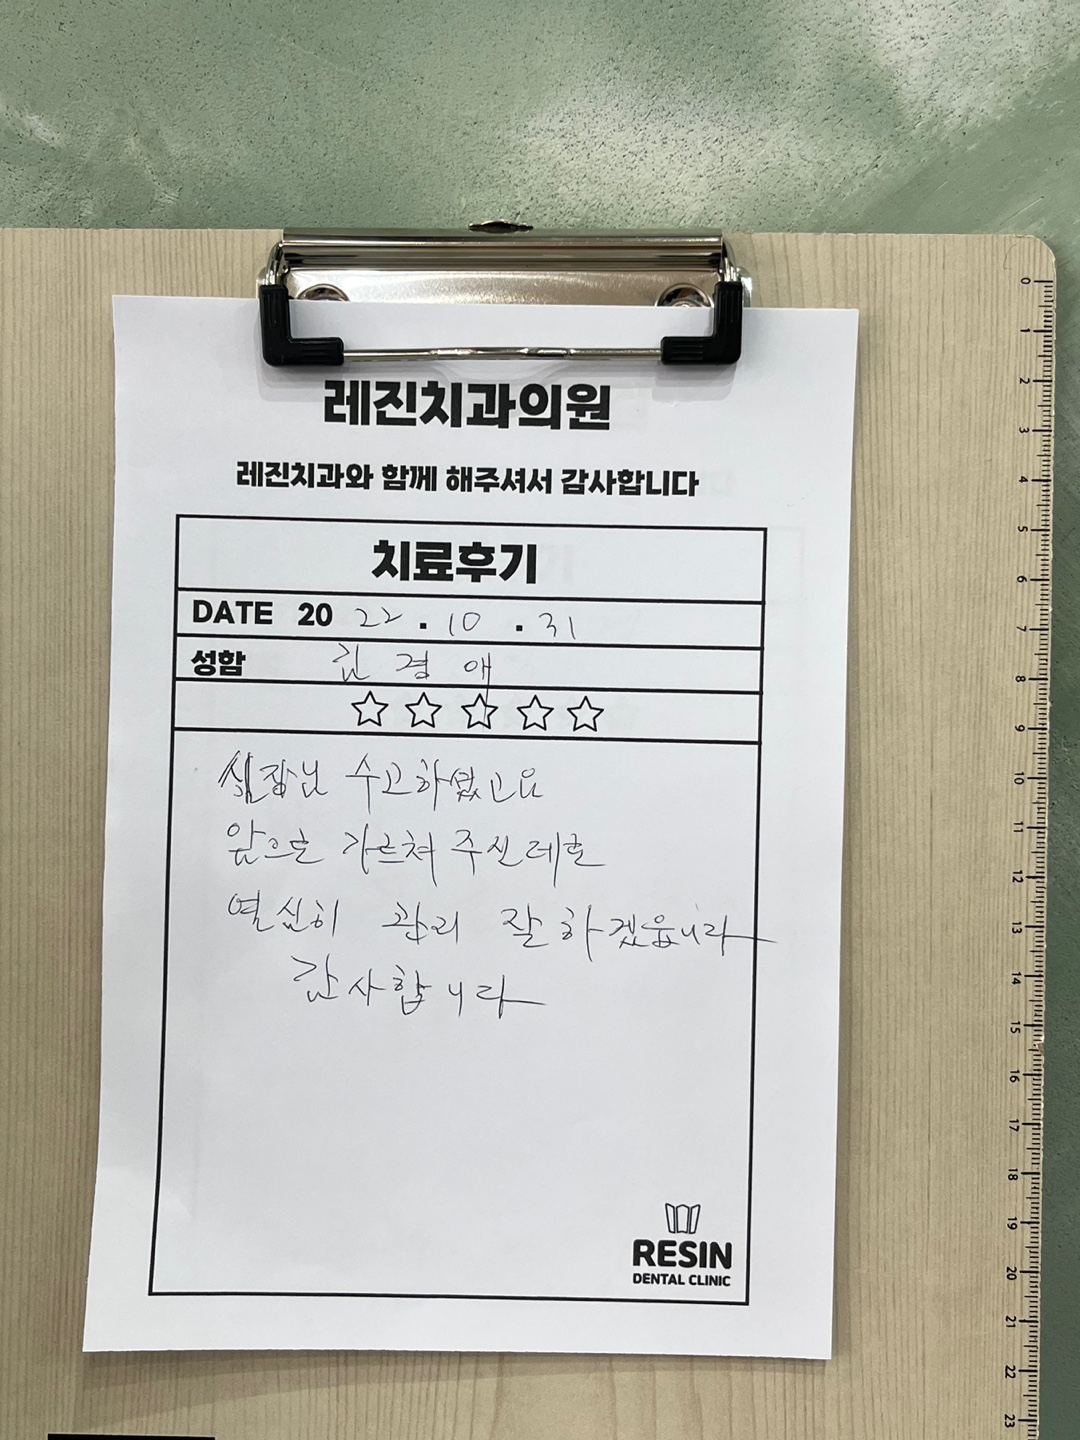 레진치과의원
레진치과와 함께 해주셔서 감사합니다
치료후기
DATE 20 22 . 10 . 31
성함 김경애
☆☆☆☆☆
실장님 수고하셨고요
앞으로 가르쳐 주신데로
열심히 관리 잘 하겠읍니다
감사합니다
RESIN
DENTAL CLINIC
0
1
2
3
4
5
6
7
8
9
10
11
12
13
14
15
16
17
18
19
20
21
22
23